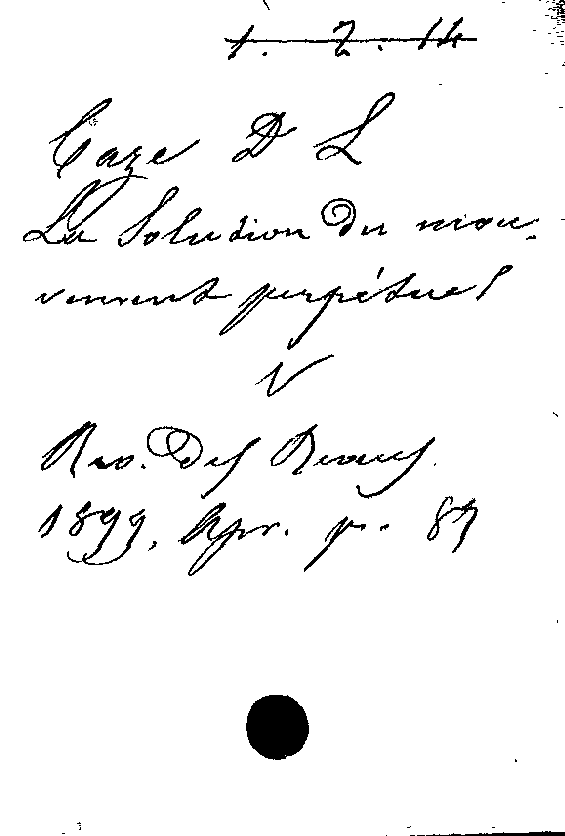 1. 2. 14
Caze D L
La Solution du mou-
vement perpétuel
V
Rev. des Revues
1899, Apr. p. 87